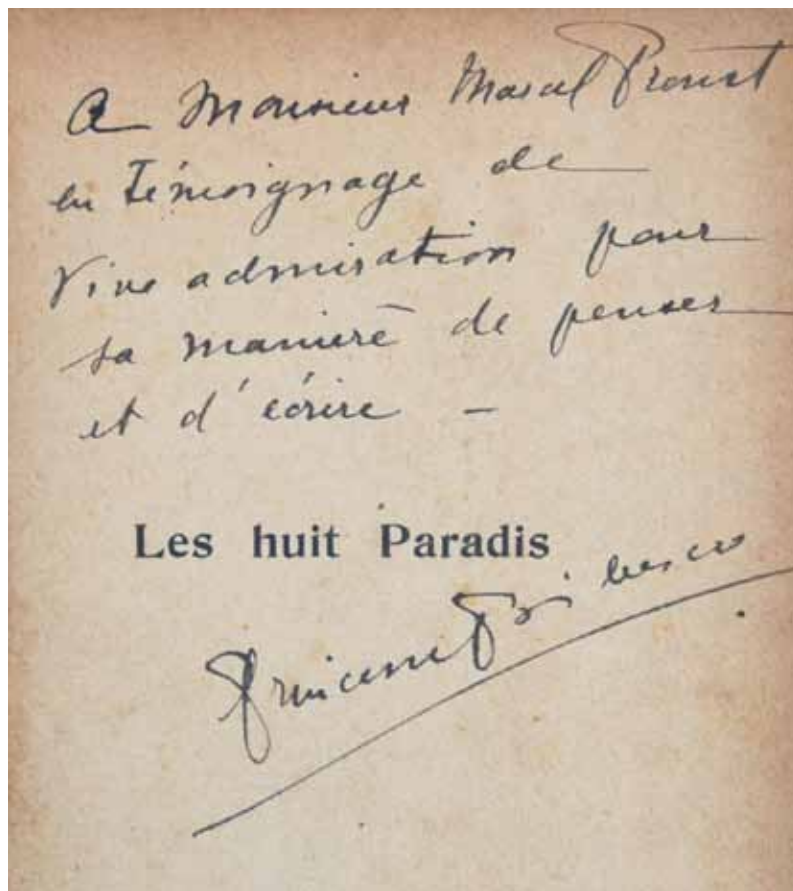 A Monsieur Marcel Proust
en Témoignage de
Vive admiration pour
sa manière de penser
et d'écrire –
Les huit Paradis
Princesse Bibesco